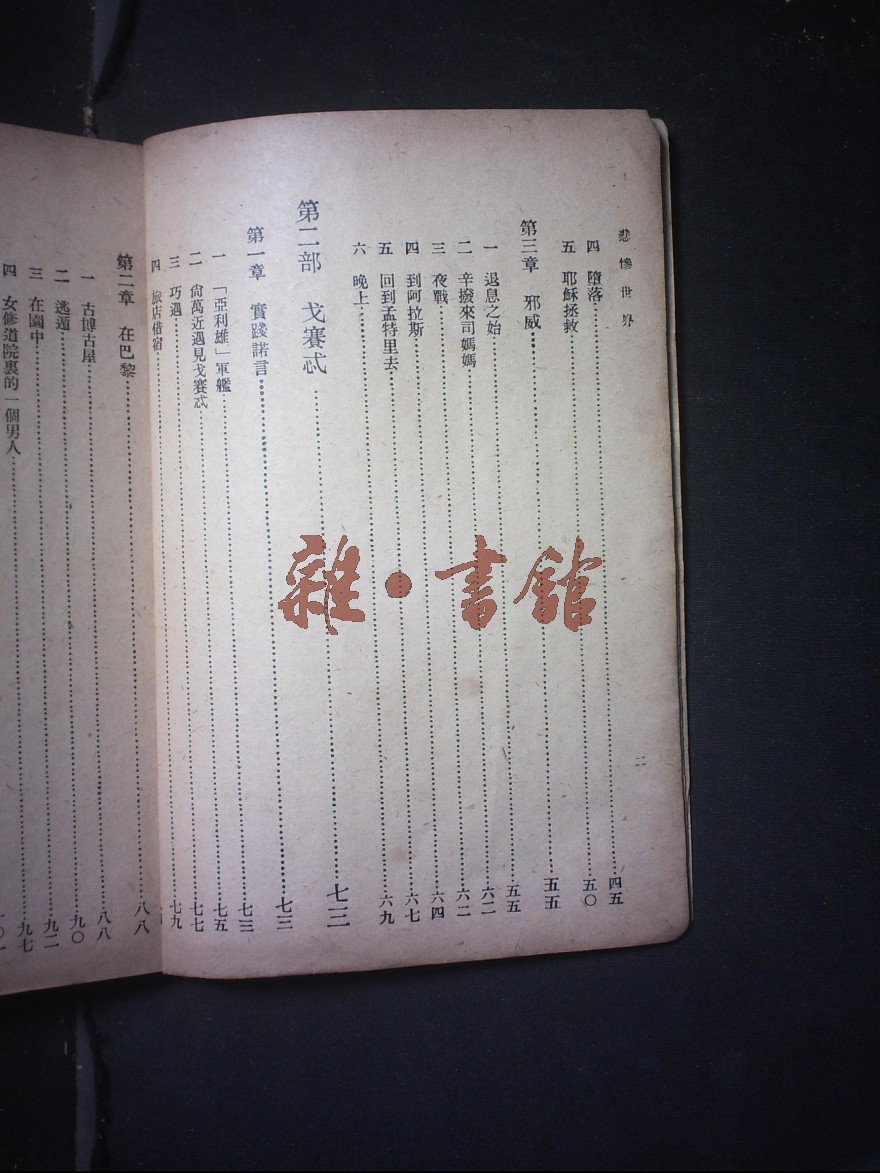 悲慘世界
二
四 墮落……四五
五 耶穌拯救……五〇
第三章 邪威……五五
一 退息之始……五五
二 辛撥來司媽媽……六二
三 夜戰……六二
四 到阿拉斯……六四
五 回到孟特里去……六七
六 晚上……六九
第二部 戈賽忒……七三
第一章 實踐諾言……七三
一 「亞利雄」軍艦……七三
二 尙萬近遇見戈賽忒……七五
三 巧遇……七七
四 旅店借宿……七九
第二章 在巴黎……八八
一 古博古屋……八八
二 逃遁……九〇
三 在園中……九二
四 女修道院裏的一個男人……九七
雜·書館